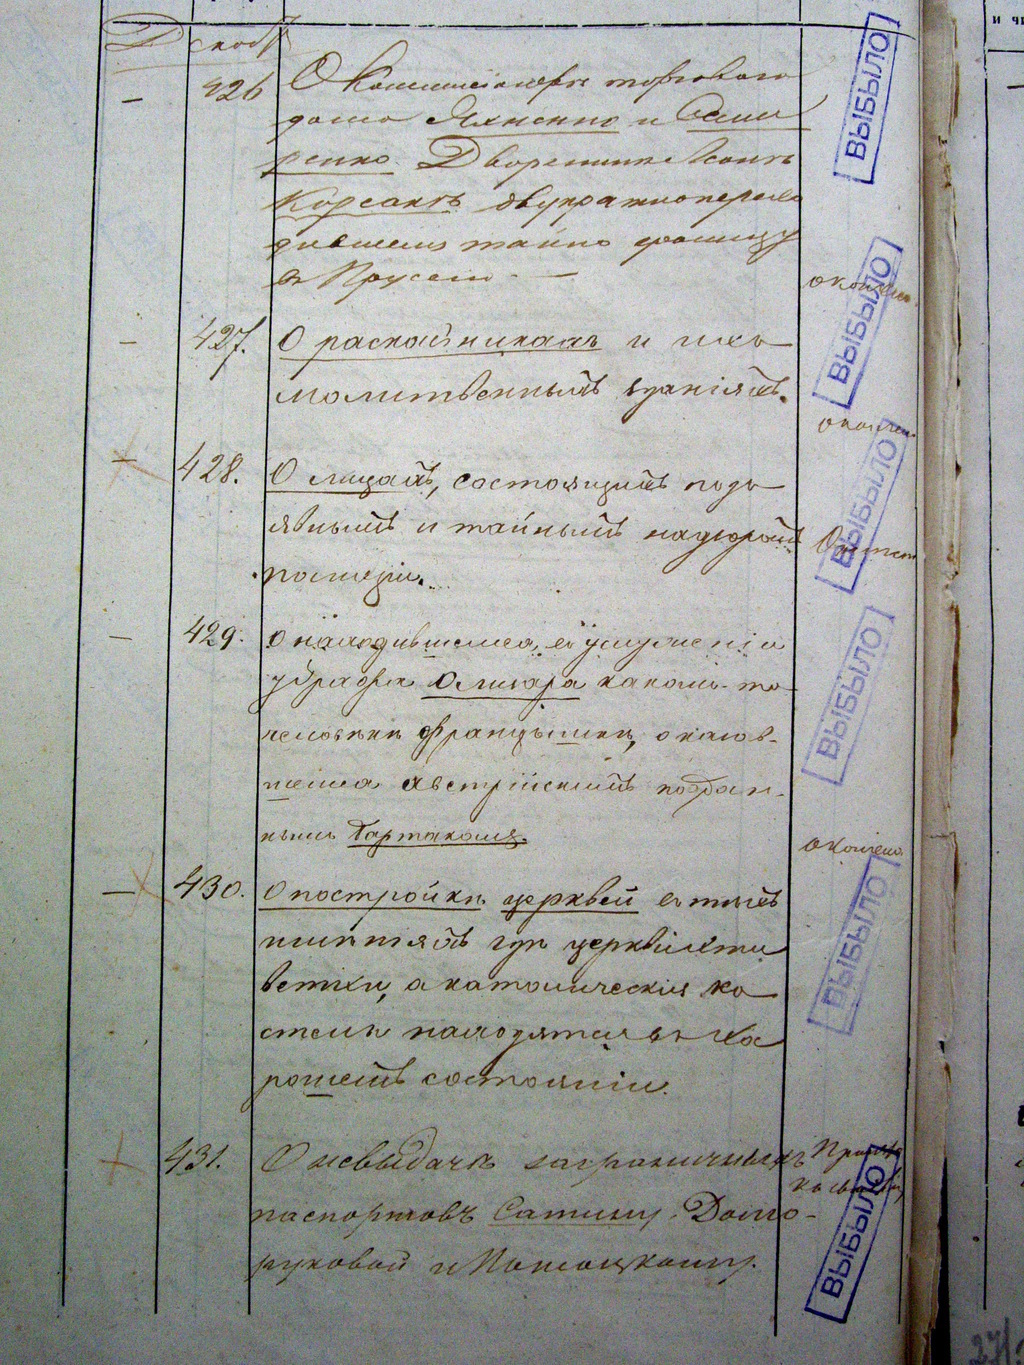 Декабр
426 О Коммисіонерѣ торговаго
дома Яхненко и Сими
ренко Дворянинѣ Исакѣ
Корсакъ двукратно перехо
дившемъ тайно границу
въ Пруссію
окончено.
ВЫБЫЛО
427. О раскольникахъ и ихъ
молитвенныхъ зданіяхъ.
окончен
ВЫБЫЛО
428. О лицахъ, состоящихъ подъ
явнымъ и тайнымъ надзоромъ
полиціи.
ВЫБЫЛО
429. О находившемся въ услуженіи
у Графа Олизара какомъ-то
человѣкѣ Французикѣ, оказав-
шемся Австрійскимъ поддан-
нымъ Бартакомъ.
окончено
ВЫБЫЛО
430. О постройкѣ церквей въ тѣхъ
имѣніяхъ гдѣ церкви эти
ветхи, а католическія ко
стелы находятся въ хо
рошемъ состояніи.
ВЫБЫЛО
431. О невыдачѣ заграничныхъ
паспортовъ Сатину, Долго-
руковой и Потоцкому.
ВЫБЫЛО